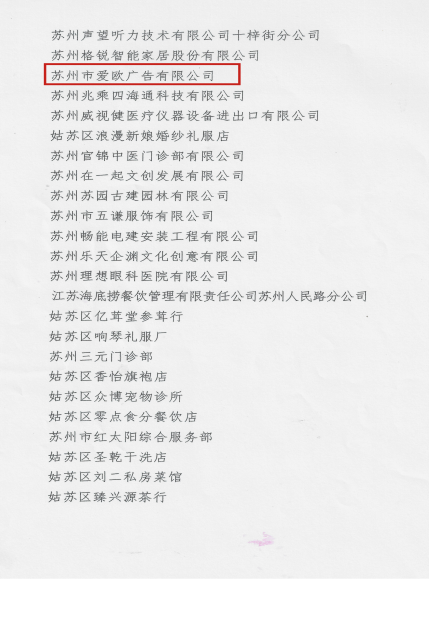 苏州声望听力技术有限公司十梓街分公司
苏州格锐智能家居股份有限公司
苏州市爱欧广告有限公司
苏州兆乘四海通科技有限公司
苏州威视健医疗仪器设备进出口有限公司
姑苏区浪漫新娘婚纱礼服店
苏州官锦中医门诊部有限公司
苏州在一起文创发展有限公司
苏州苏园古建园林有限公司
苏州市五谦服饰有限公司
苏州畅能电建安装工程有限公司
苏州乐天企渊文化创意有限公司
苏州理想眼科医院有限公司
江苏海底捞餐饮管理有限责任公司苏州人民路分公司
姑苏区亿茸堂参茸行
姑苏区响琴礼服厂
苏州三元门诊部
姑苏区香怡旗袍店
姑苏区众博宠物诊所
姑苏区零点食分餐饮店
苏州市红太阳综合服务部
姑苏区圣乾干洗店
姑苏区刘二私房菜馆
姑苏区臻兴源茶行